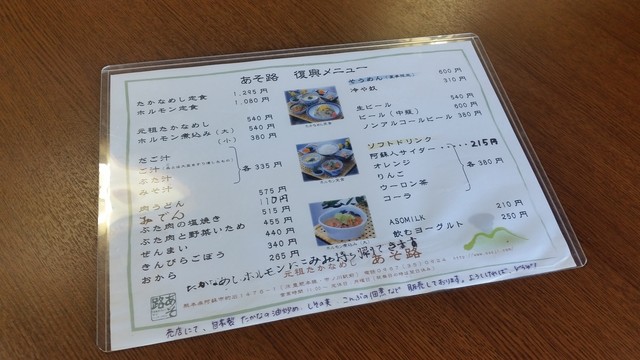 あそ路 復興メニュー
たかなめし定食 1,295円
ホルモン定食 1,080円
元祖たかなめし 540円
ホルモン煮込み(大) 540円
(小) 380円
だご汁
ご汁
ぶた汁
みそ汁
各335円
肉うどん 575円
おでん 110円
ぶた肉の塩焼き 515円
ぶた肉と野菜いため 455円
ぜんまい 440円
きんぴらごぼう 340円
おから 265円
そうめん 600円
冷や奴 310円
生ビール 540円
ビール(中瓶) 600円
ノンアルコールビール 380円
ソフトドリンク
阿蘇人サイダー・・・・・215円
オレンジ
りんご
ウーロン茶
コーラ
各380円
ASOMILK 210円
飲むヨーグルト 250円
たかなめし ホルモンにこみ お持ち帰りできます
元祖たかなめし あそ路
あそ路
売店にて、自家製 たかなの油炒め、しその実、こんぶの佃煮など 販売しております。よろしければ、どうぞ